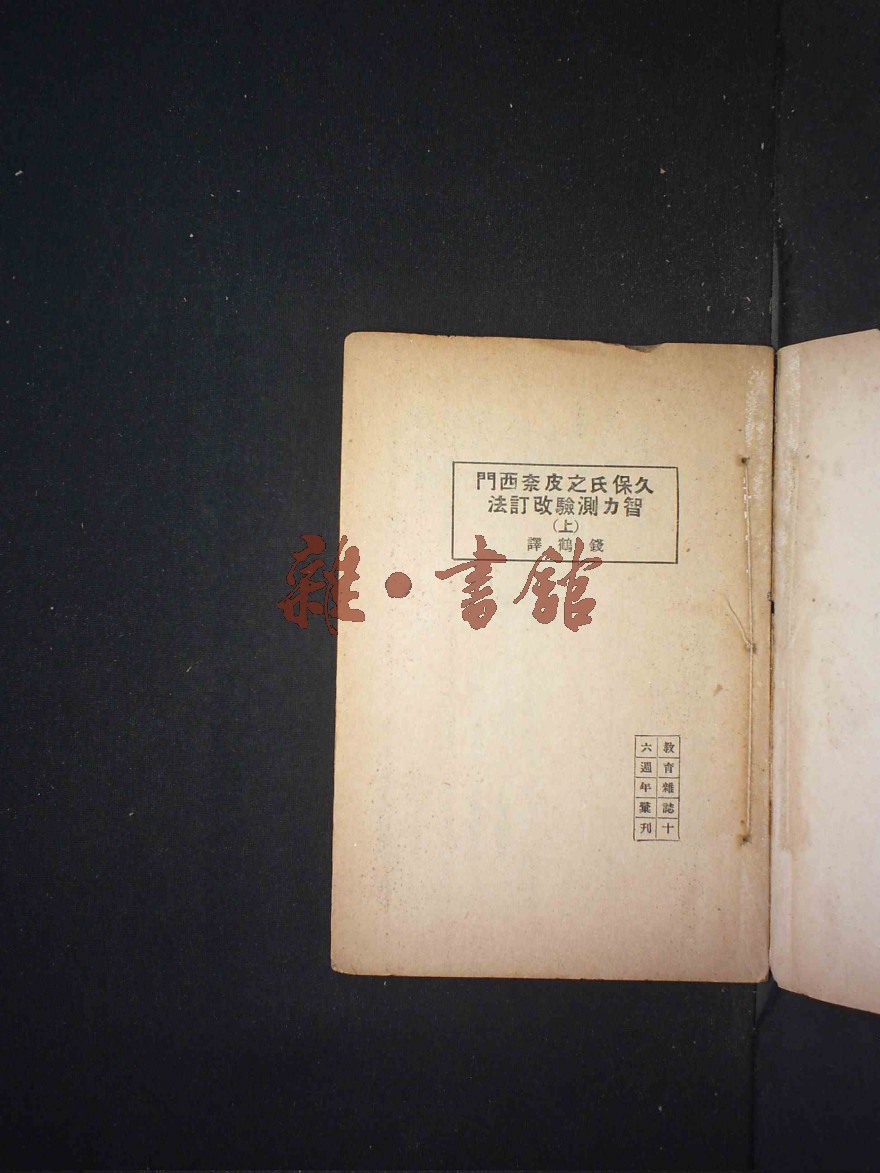 久保氏之皮奈西門
智力測驗改訂法
(上)
錢鶴譯
雜·書館
教育雜誌十
六週年彙刊